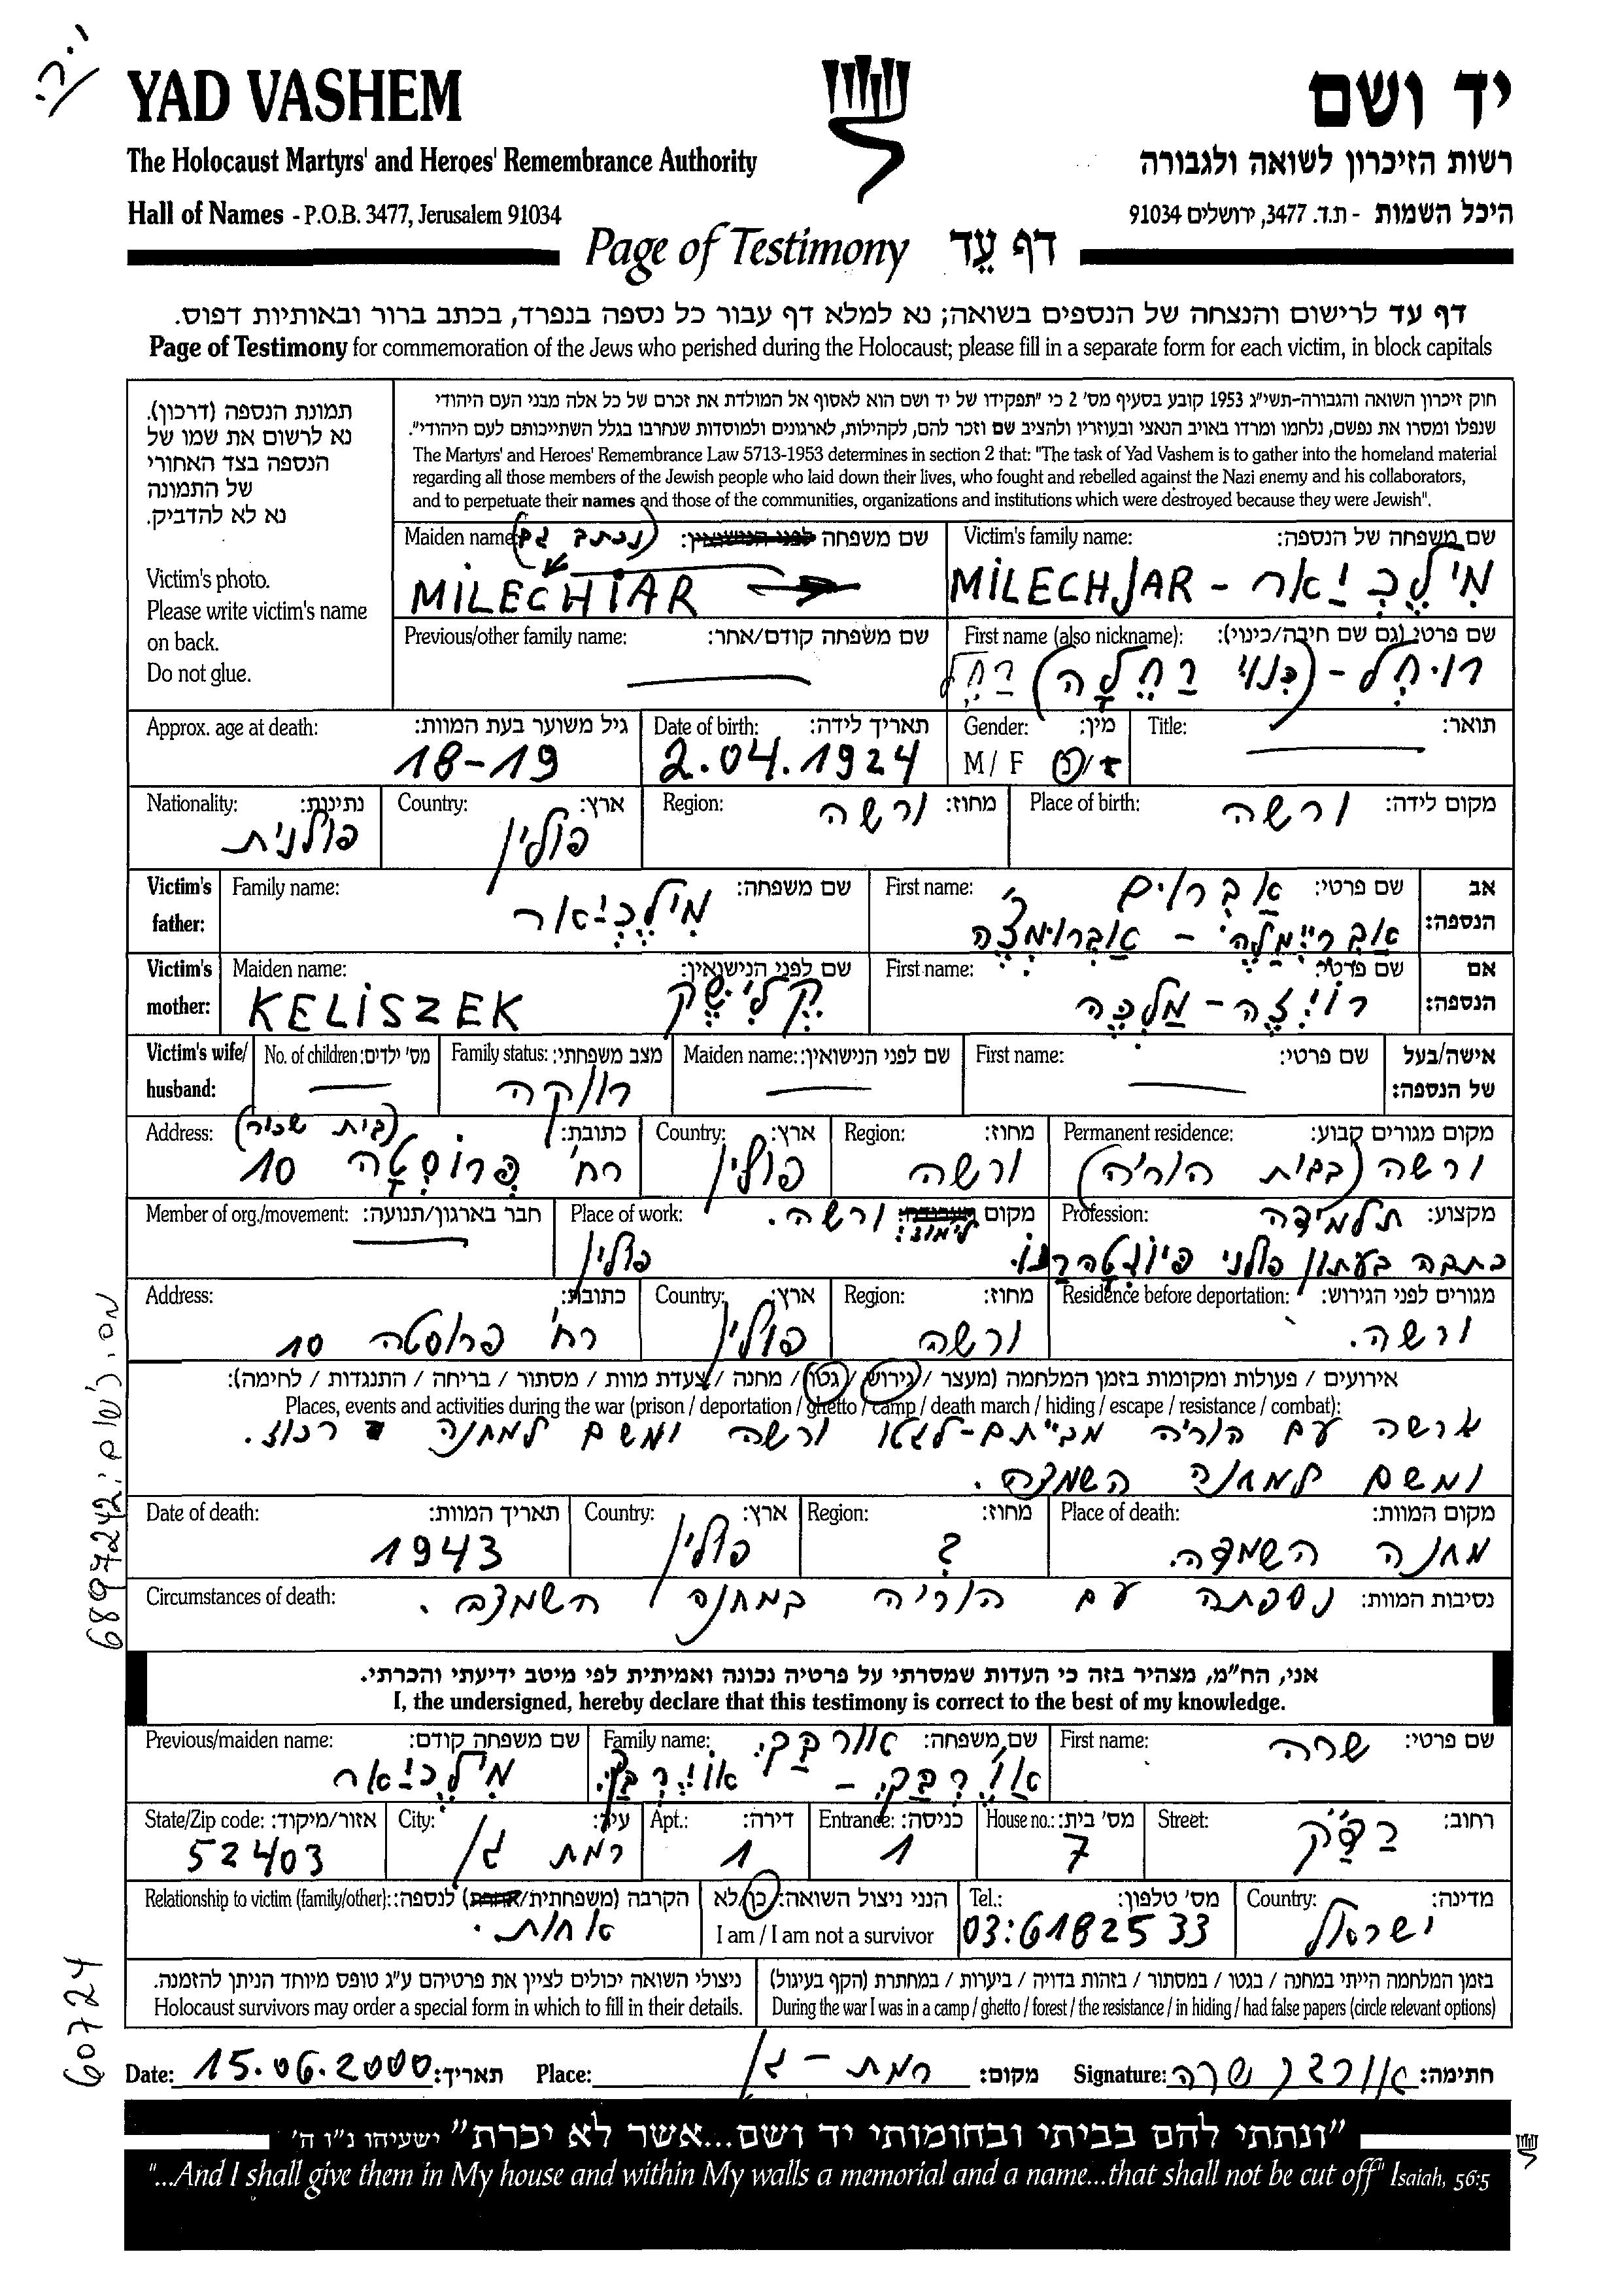 י.ק.
YAD VASHEM
יד ושם
The Holocaust Martyrs' and Heroes' Remembrance Authority
רשות הזיכרון לשואה ולגבורה
Hall of Names - P.O.B. 3477, Jerusalem 91034
היכל השמות - ת.ד. 3477, ירושלים 91034
Page of Testimony דף עֵד
דף עד לרישום והנצחה של הנספים בשואה; נא למלא דף עבור כל נספה בנפרד, בכתב ברור ובאותיות דפוס.
Page of Testimony for commemoration of the Jews who perished during the Holocaust; please fill in a separate form for each victim, in block capitals
תמונת הנספה (דרכון).
נא לרשום את שמו של
הנספה בצד האחורי
של התמונה
נא לא להדביק.
Victim's photo.
Please write victim's name
on back.
Do not glue.
חוק זיכרון השואה והגבורה-תשי"ג 1953 קובע בסעיף מס' 2 כי "תפקידו של יד ושם הוא לאסוף אל המולדת את זכרם של כל אלה מבני העם היהודי
שנפלו ומסרו את נפשם, נלחמו ומרדו באויב הנאצי ובעוזריו ולהציב שם וזכר להם, לקהילות, לארגונים ולמוסדות שנחרבו בגלל השתייכותם לעם היהודי".
The Martyrs' and Heroes' Remembrance Law 5713-1953 determines in section 2 that: "The task of Yad Vashem is to gather into the homeland material
regarding all those members of the Jewish people who laid down their lives, who fought and rebelled against the Nazi enemy and his collaborators,
and to perpetuate their names and those of the communities, organizations and institutions which were destroyed because they were Jewish".
Victim's family name: שם משפחה של הנספה:
MILECHJAR - מִילֶכְיַאר
Maiden name: (נכתב גם) שם משפחה לפני הנישואין:
MILECHIAR
First name (also nickname): שם פרטי (גם שם חיבה/כינוי):
רויחל - (כנוי רַחֶלָה) רָחֵל
Previous/other family name: שם משפחה קודם/אחר:
Title: תואר:
Gender: מין:
M / F ז/נ
Date of birth: תאריך לידה:
2.04.1924
Approx. age at death: גיל משוער בעת המוות:
18-19
Place of birth: מקום לידה:
ורשה
Region: מחוז:
ורשה
Country: ארץ:
פולין
Nationality: נתינות:
פולנית
Victim's father: אב הנספה:
First name: שם פרטי:
אברהים
Family name: שם משפחה:
מִילֶכְיַאר
Victim's mother: אם הנספה:
First name: שם פרטי:
רויזה - מלכה
Maiden name: שם לפני הנישואין:
KELISZEK קֶלִישֶק
Victim's wife/ husband: אישה/בעל של הנספה:
First name: שם פרטי:
Maiden name: שם לפני הנישואין:
Family status: מצב משפחתי:
רווקה
No. of children: מס' ילדים:
Permanent residence: מקום מגורים קבוע:
ורשה (בבית הוריה)
Region: מחוז:
ורשה
Country: ארץ:
פולין
Address: כתובת:
(בית שכור)
רח' פרוסטה 10
Profession: מקצוע:
תלמידה
כתבה בעתון פולני
Place of work: מקום העבודה:
לימוד: ורשה.
פולין
Member of org./movement: חבר בארגון/תנועה:
Residence before deportation: מגורים לפני הגירוש:
ורשה.
Region: מחוז:
ורשה
Country: ארץ:
פולין
Address: כתובת:
רח' פרוסטה 10
אירועים / פעולות ומקומות בזמן המלחמה (מעצר / גירוש / גטו / מחנה / צעדת מוות / מסתור / בריחה / התנגדות / לחימה):
Places, events and activities during the war (prison / deportation / ghetto / camp / death march / hiding / escape / resistance / combat):
גורשה עם הוריה מביתם-לגטו ורשה ומשם למחנה רכוז.
ומשם למחנה השמדה.
Place of death: מקום המוות:
מחנה השמדה.
Region: מחוז:
?
Country: ארץ:
פולין
Date of death: תאריך המוות:
1943
Circumstances of death: נסיבות המוות:
נספתה עם הוריה במחנה השמדה.
אני, הח"מ, מצהיר בזה כי העדות שמסרתי על פרטיה נכונה ואמיתית לפי מיטב ידיעתי והכרתי.
I, the undersigned, hereby declare that this testimony is correct to the best of my knowledge.
First name: שם פרטי:
שרה
Family name: שם משפחה:
אוורבך.
Previous/maiden name: שם משפחה קודם:
מִילֶכְיַאר
Street: רחוב:
House no.: מס' בית:
7
Entrance: כניסה:
1
Apt.: דירה:
1
City: עיר:
רמת גן
State/Zip code: אזור/מיקוד:
52403
Country: מדינה:
ישראל
Tel.: מס' טלפון:
03:6182533
הנני ניצול השואה: כן/לא
I am / I am not a survivor
Relationship to victim (family/other): הקרבה (משפחתית/אחרת) לנספה:
אחות.
בזמן המלחמה הייתי במחנה / בגטו / במסתור / בזהות בדויה / ביערות / במחתרת (הקף בעיגול)
During the war I was in a camp / ghetto / forest / the resistance / in hiding / had false papers (circle relevant options)
ניצולי השואה יכולים לציין את פרטיהם ע"ג טופס מיוחד הניתן להזמנה.
Holocaust survivors may order a special form in which to fill in their details.
Date: 15.06.2000 תאריך:
Place: רמת-גן מקום:
Signature: שרה חתימה:
"ונתתי להם בביתי ובחומותי יד ושם...אשר לא יכרת" ישעיהו נ"ו ה'
"...And I shall give them in My house and within My walls a memorial and a name...that shall not be cut off" Isaiah, 56:5
מס. רשום: 68997242
60724